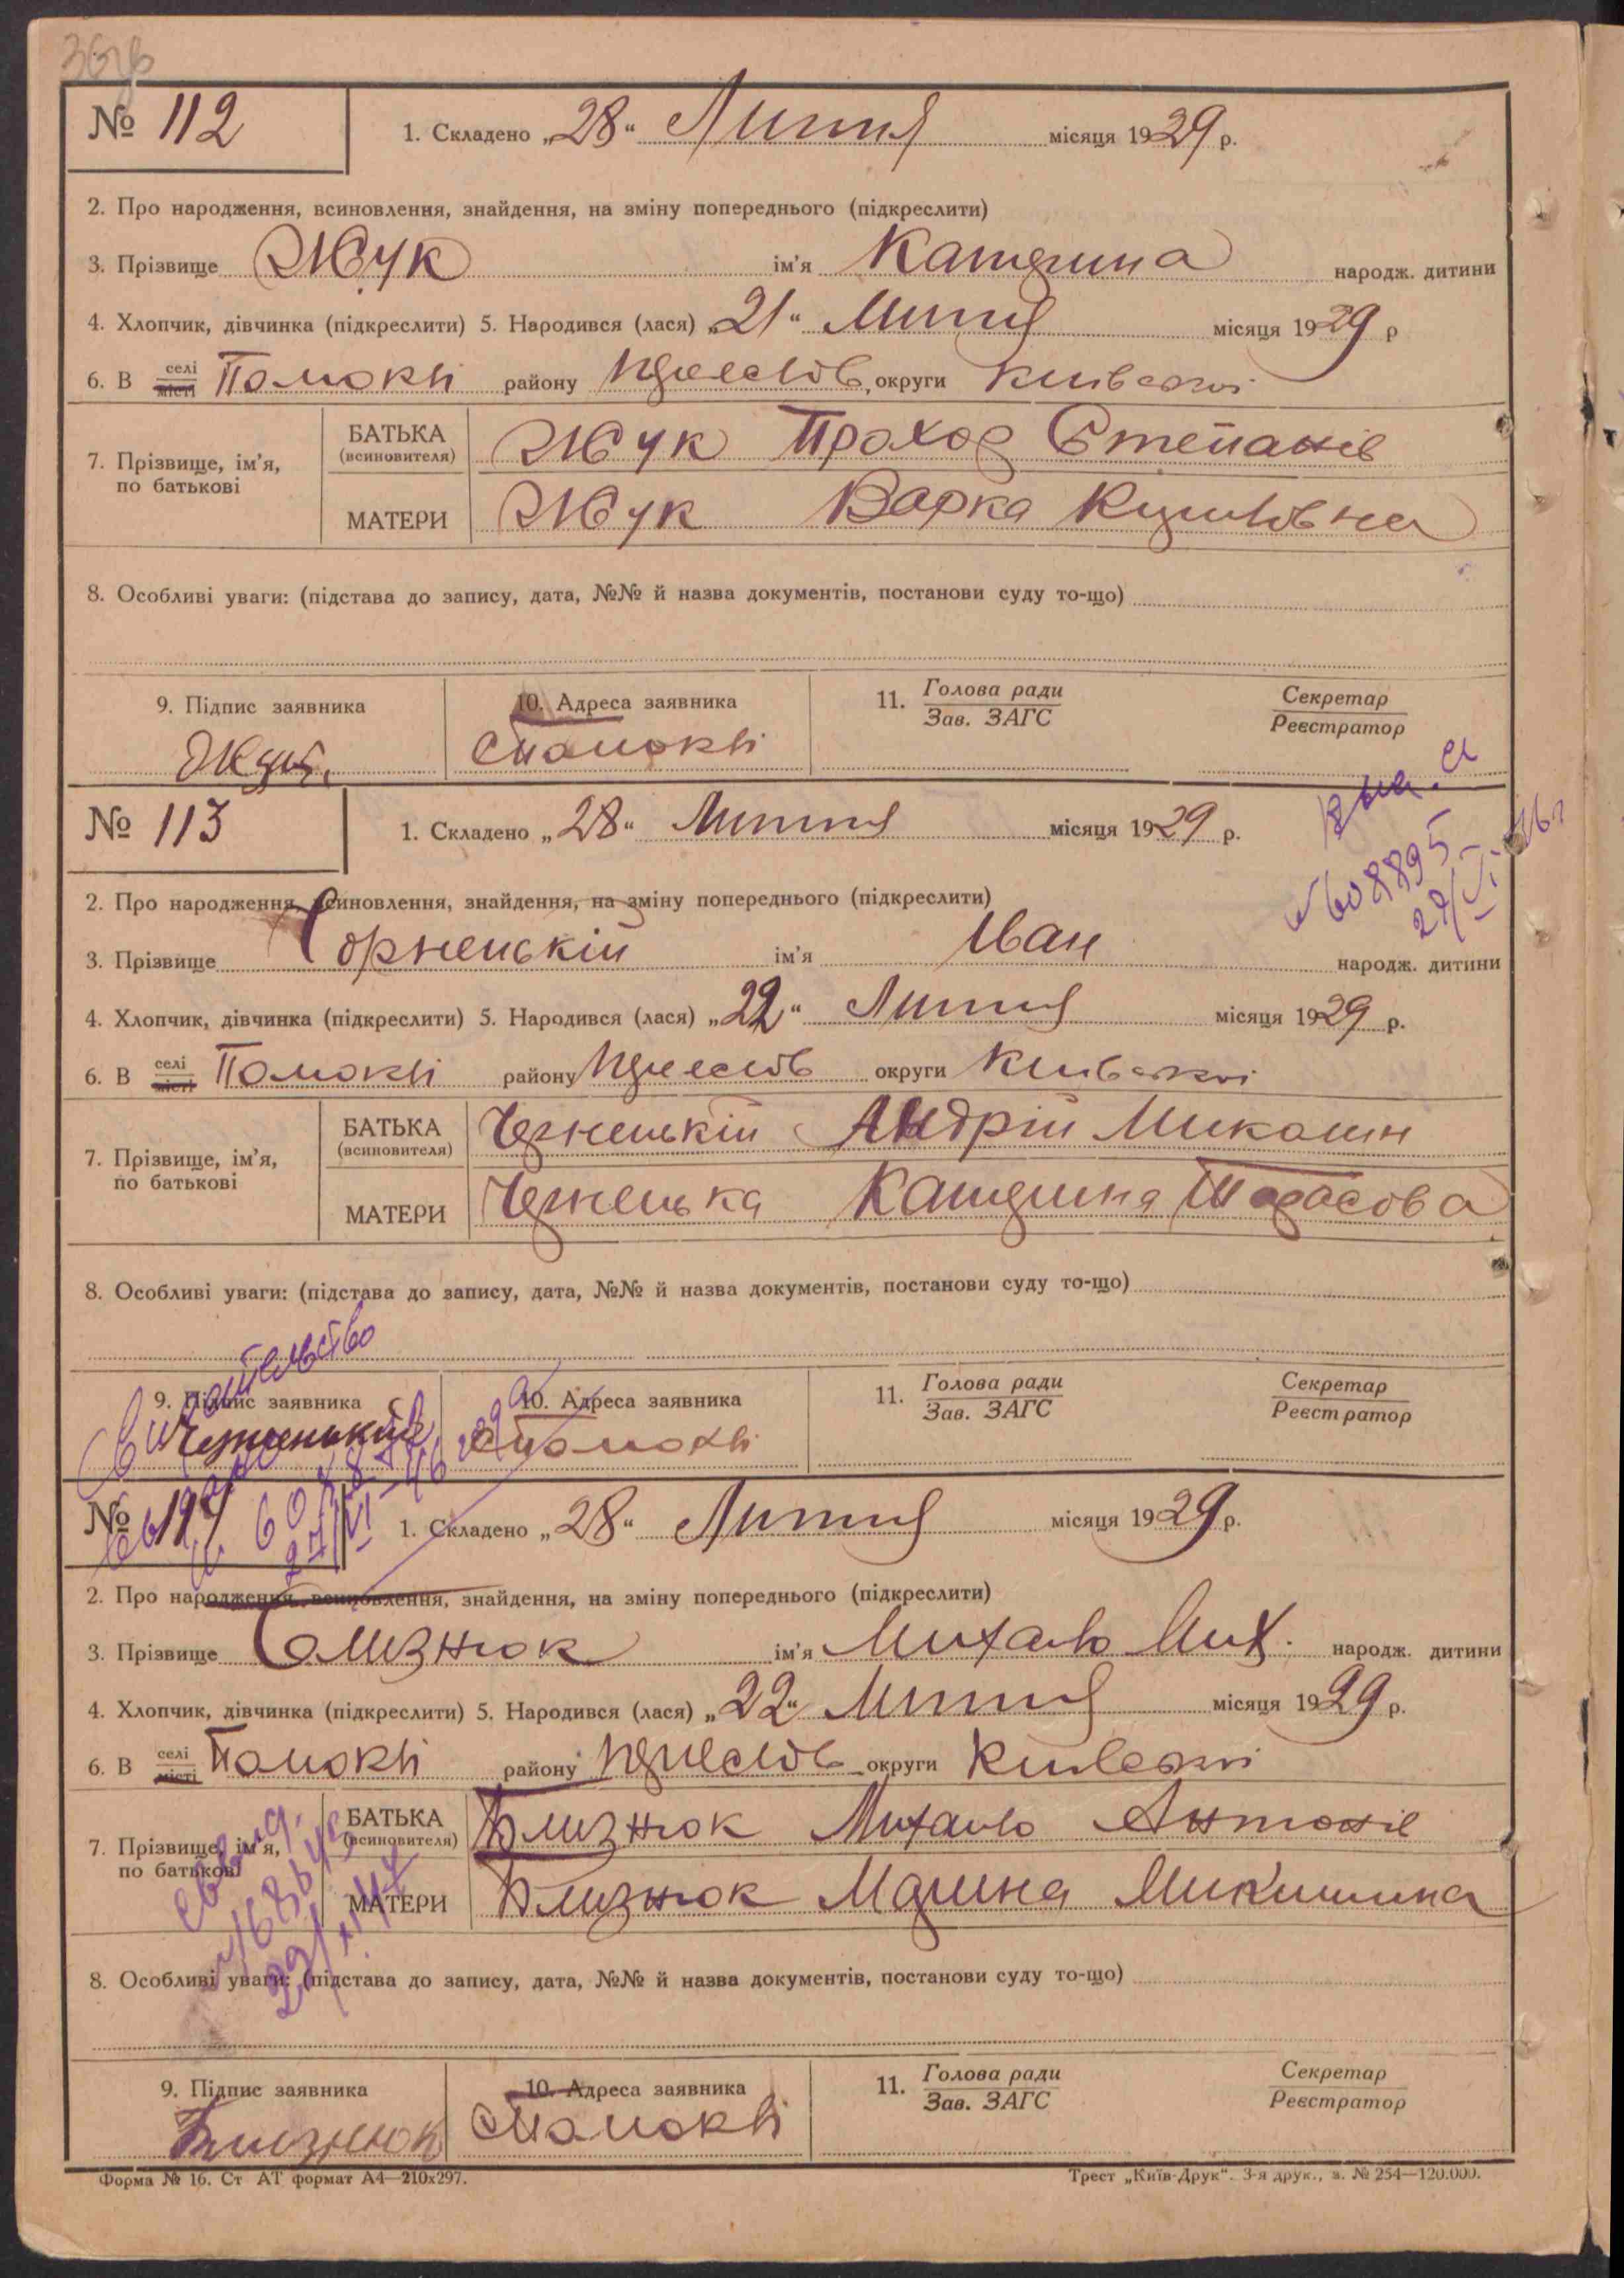 № 112
1. Складено „28“ Липня місяця 1929 р.
2. Про народження, всиновлення, знайдення, на зміну попереднього (підкреслити)
3. Прізвище Жук ім'я Катерина народж. дитини
4. Хлопчик, дівчинка (підкреслити) 5. Народився (лася) „21“ Липня місяця 1929 р
6. В селі місті Помоклі району округи Київської
7. Прізвище, ім'я, по батькові
БАТЬКА (всиновителя) Жук Прохор Степанів
МАТЕРИ Жук Варка
8. Особливі уваги: (підстава до запису, дата, №№ й назва документів, постанови суду то-що)
9. Підпис заявника
10. Адреса заявника
11. Голова ради Зав. ЗАГС
Секретар Реєстратор
с Помоклі
№ 113
1. Складено „28“ Липня місяця 1929 р.
№608895
2. Про народження, всиновлення, знайдення, на зміну попереднього (підкреслити)
3. Прізвище ім'я Іван народж. дитини
4. Хлопчик, дівчинка (підкреслити) 5. Народився (лася) „22“ Липня місяця 1929 р.
6. В селі місті Помоклі району округи Київської
7. Прізвище, ім'я, по батькові
БАТЬКА (всиновителя) Чернецькій Андрій
МАТЕРИ Чернецька Катерина Тарасова
8. Особливі уваги: (підстава до запису, дата, №№ й назва документів, постанови суду то-що)
9. Підпис заявника
10. Адреса заявника
11. Голова ради Зав. ЗАГС
Секретар Реєстратор
с Помоклі
№ 114
1. Складено „28“ Липня місяця 1929 р.
2. Про народження, всиновлення, знайдення, на зміну попереднього (підкреслити)
3. Прізвище Близнюк ім'я Михайло Мих. народж. дитини
4. Хлопчик, дівчинка (підкреслити) 5. Народився (лася) „22“ Липня місяця 1929 р.
6. В селі місті Помоклі району округи Київської
7. Прізвище, ім'я, по батькові
БАТЬКА (всиновителя) Близнюк Михайло Антонів
МАТЕРИ Близнюк Марина
8. Особливі уваги: (підстава до запису, дата, №№ й назва документів, постанови суду то-що)
9. Підпис заявника
10. Адреса заявника
11. Голова ради Зав. ЗАГС
Секретар Реєстратор
Близнюк
с Помоклі
Форма № 16. Ст АТ формат А4—210х297.
Трест „Київ-Друк“. 3-я друк., з. № 254—120.000.